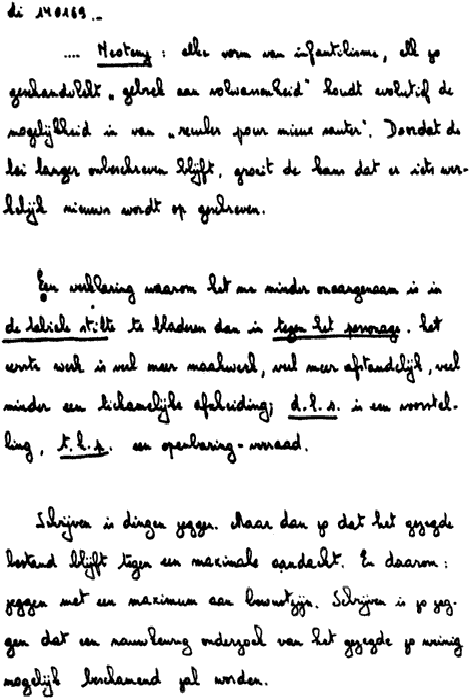 di 140169...
.... Neoteny : elke vorm van infantilisme, elk zo
geschandvlekt „gebrek aan volwassenheid" houdt evolutief de
mogelijkheid in van „reculer pour mieux sauter". Doordat de
lei langer onbeschreven blijft, groeit de kans dat er iets wer-
kelijk nieuws wordt op geschreven.
Een verklaring waarom het me minder onaangenaam is in
de labiele stilte te bladeren dan in tegen het personage. het
eerste werk is veel meer maakwerk, veel meer afstandelijk, veel
minder een lichamelijke afscheiding; d.l.s. is een voorstel-
ling, t.h.p. een openbaring = verraad.
Schrijven is dingen zeggen. Maar dan zo dat het gezegde
bestand blijft tegen een maximale aandacht. En daarom :
zeggen met een maximum aan bewustzijn. Schrijven is zo zeg-
gen dat een nauwkeurig onderzoek van het gezegde zo weinig
mogelijk beschamend zal worden.